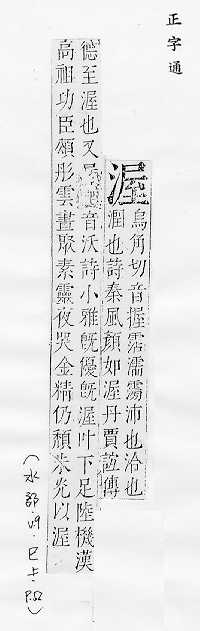 正字通
渥
烏角切音握霑濡霶沛也洽也
潤也詩秦風顏如渥丹賈誼傳
德至渥也又音沃詩小雅旣優旣渥叶下足陸機漢
高祖功臣頌彤雲晝聚素靈夜哭金精仍頹朱光以渥
(水部.49.巳上.P.52)